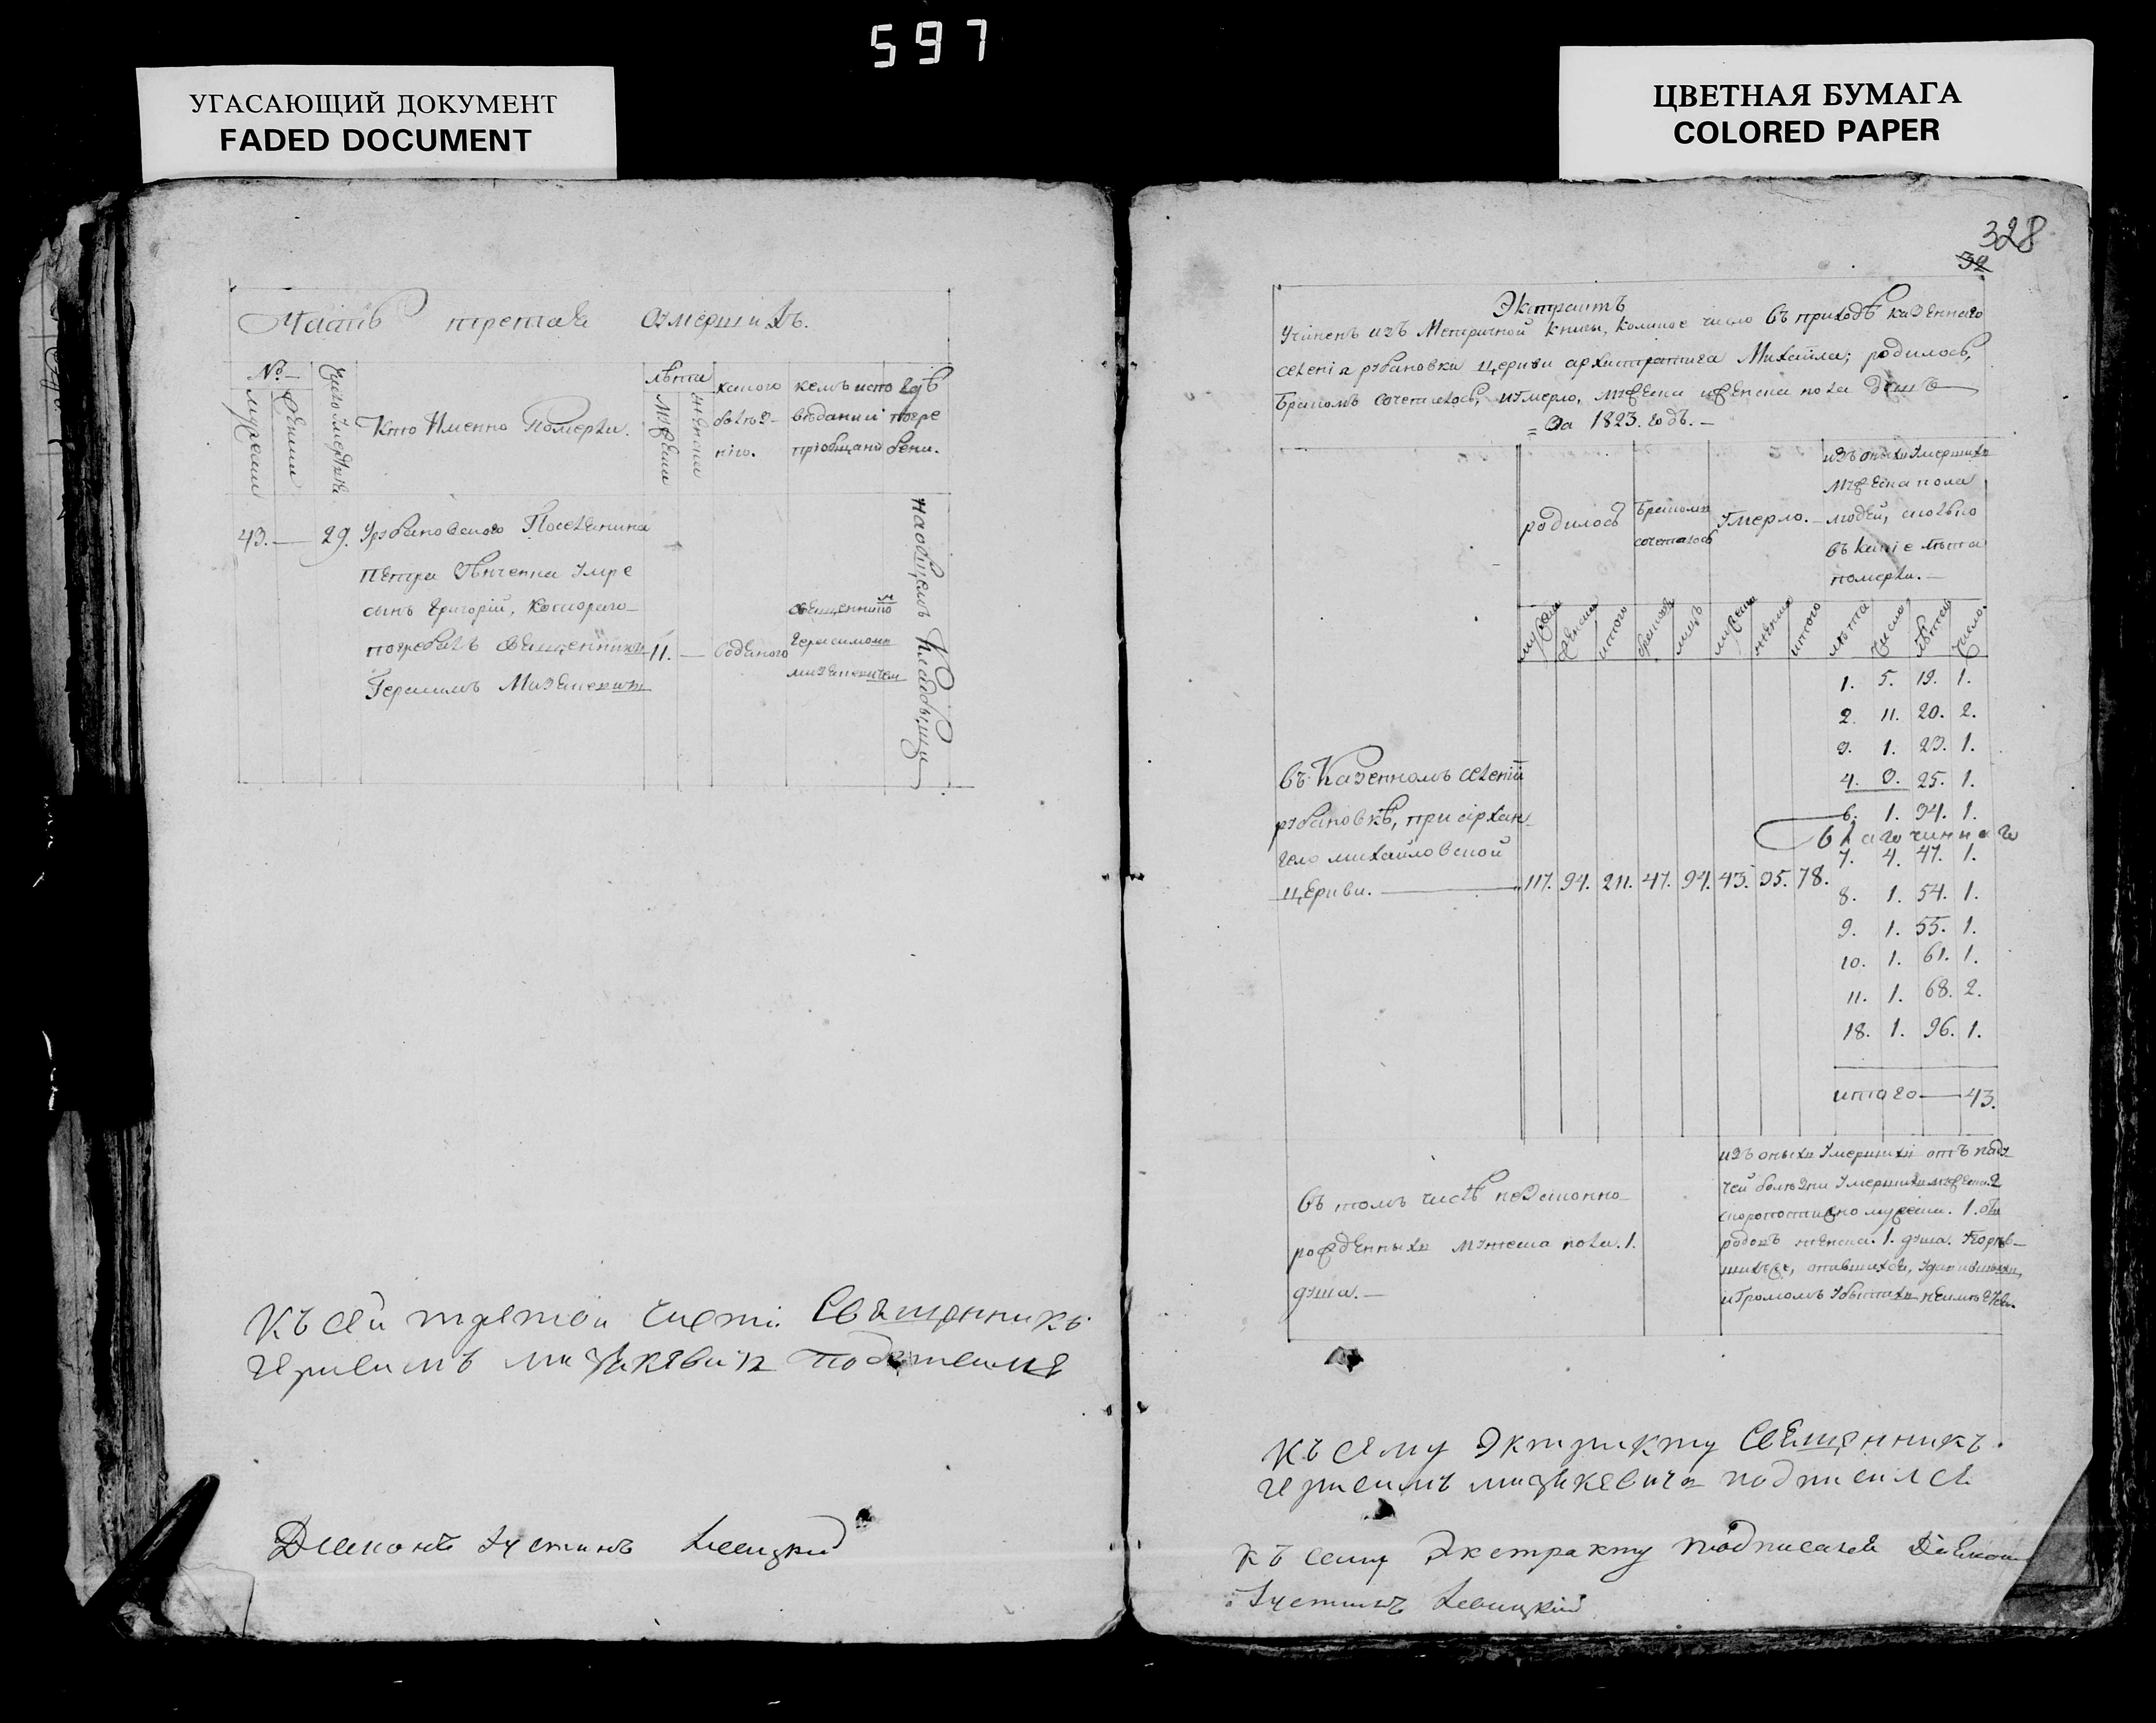 597
УГАСАЮЩИЙ ДОКУМЕНТ
FADED DOCUMENT
ЦВЕТНАЯ БУМАГА
COLORED PAPER
Часть третая Умершихъ.
№.
мужеска
женска
число умертвія
Кто Именно Померли.
лѣта
мужеска
женска
какого
болѣз-
нію.
кемъ испо
вѣданы и
пріобщаны
гдѣ
погре
бены.
43. — 29. Урбановского Поселенина
Петра умре
сынъ Григорій, котораго
погребалъ священникъ 11. —
Герасимъ
священнико
Герасимомъ
на общемъ Кладбищи
Къ сей третой части Священникъ
Герасимъ подписался
Діаконъ Іустинъ Левицкий
328
32
Экстрактъ
Учиненъ изъ Метричной книги, коликое число въ приходѣ казенного
селенія рубановки церкви архистратига Михаила; родилось,
бракомъ сочеталось, и умерло, мужеска и женска пола душъ
За 1823. годъ. —
родилось
бракомъ
сочеталось
Умерло. —
изъ оныхъ умершихъ
мужеска пола
людей, сколько
въ какіе лѣта
померли. —
мужеска
женска
итого
браковъ
лицъ
мужеска
женска
итого
лѣта
число
лѣта
число.
1. 5. 19. 1.
2. 11. 20. 2.
3. 1. 23. 1.
4. 3. 25. 1.
6. 1. 34. 1.
благочиннаго
7. 4. 47. 1.
8. 1. 54. 1.
9. 1. 55. 1.
10. 1. 61. 1.
11. 1. 68. 2.
18. 1. 96. 1.
итого — 43.
въ Казенномъ селеніи
рубановкѣ, при архан
гело михайловской
церкви. — 117. 94. 211. 47. 94. 43. 35. 78.
въ томъ числѣ незаконно
рожденныхъ мужеска пола. 1.
душа. —
изъ оныхъ умершихъ отъ паду
чей болѣзни умершихъ мужеска. 2
скоропостижно мужеска. 1. отъ
родовъ женска. 1. душа.
опившихся,
и громомъ убитыхъ
Къ сему Экстракту Священникъ
Герасимъ подписался
Къ сему Экстракту подписался Діакон
Іустинъ Левицкій